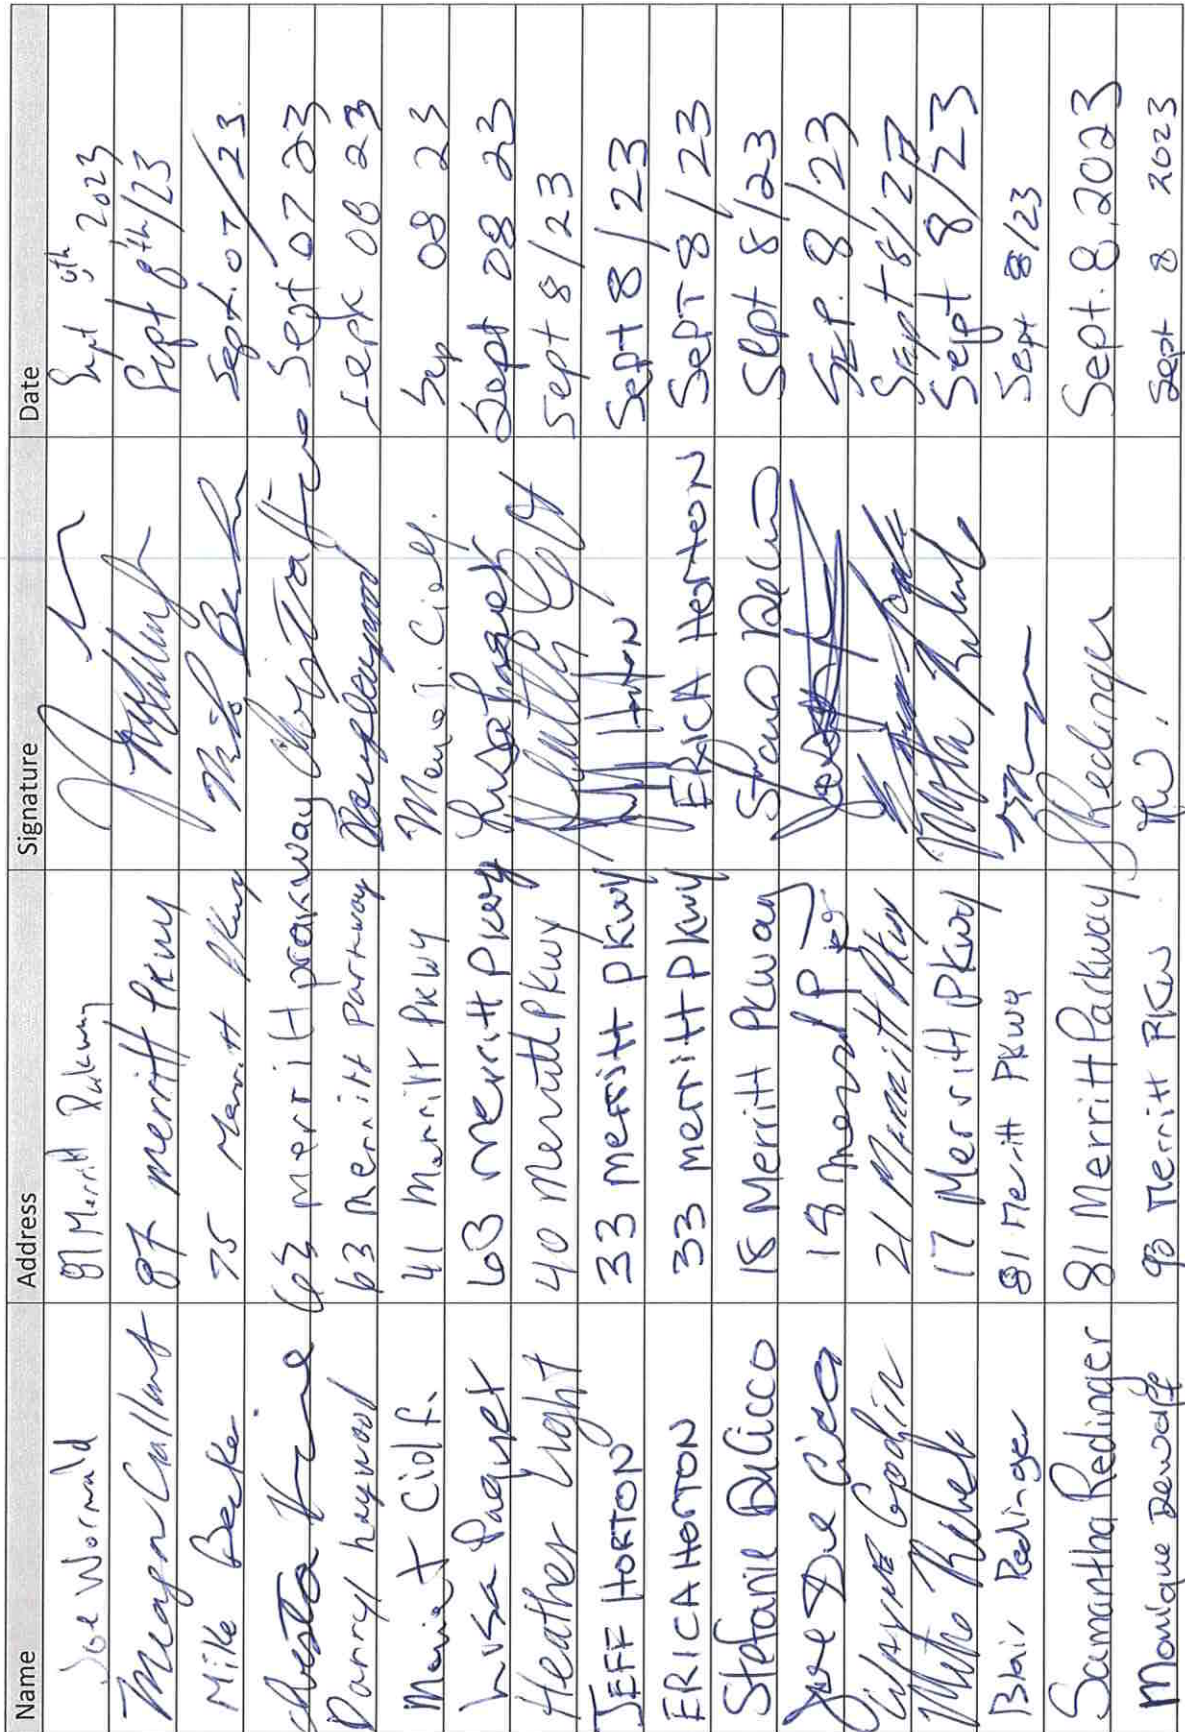 Name Address Signature Date
Joe Wormald 87 Merritt Parkway Sept 9th 2023
Meagan Gallant 87 Merritt Pkwy Sept 8th/23
Mike Becke 75 Merritt Pkwy Sept. 07/23
63 merritt parkway Sept 07 23
Darryl haywood 63 Merritt Parkway Sept 08 23
Ciolfi 41 Merritt PKWY Sep 08 23
Luisa Paquet 63 Merritt Pkwy Luisa Paquet Sept 08 23
Heather Light 40 Merritt Pkwy Heather Light Sept 8/23
JEFF HORTON 33 merritt Pkwy Jeff Horton Sept 8/23
ERICA HORTON 33 merritt Pkwy ERICA HORTON Sept 8/23
Stefanie DelCicco 18 Merritt Pkway Sept 8/23
Joe Del Cicco 18 Sep. 8/23
WAYNE Godin 21 Merritt Pkwy Sept 8/27
17 Merritt Pkwy Sept 8/23
Blair Redinger 81 Merritt Pkwy Sept 8/23
Samantha Redinger 81 Merritt Parkway SRedinger Sept. 8, 2023
Monique 93 Merritt PKW Sept 8 2023